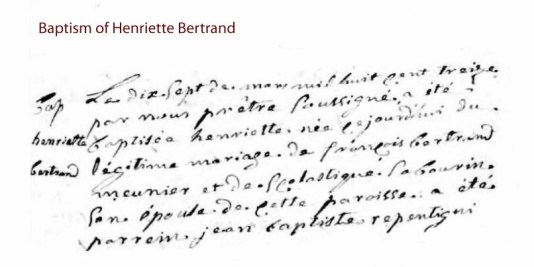 Baptism of Henriette Bertrand
Bap
henriette
bertrand
Le dix Sept de mars mil huit cent treize
par nous prêtre Soussigné a été
baptisée henriette née cejourd'hui du
légitime mariage de françois bertrand
meunier et de Scolastique Sabourin
Son épouse de cette paroisse a été
parrein jean baptiste repentigni